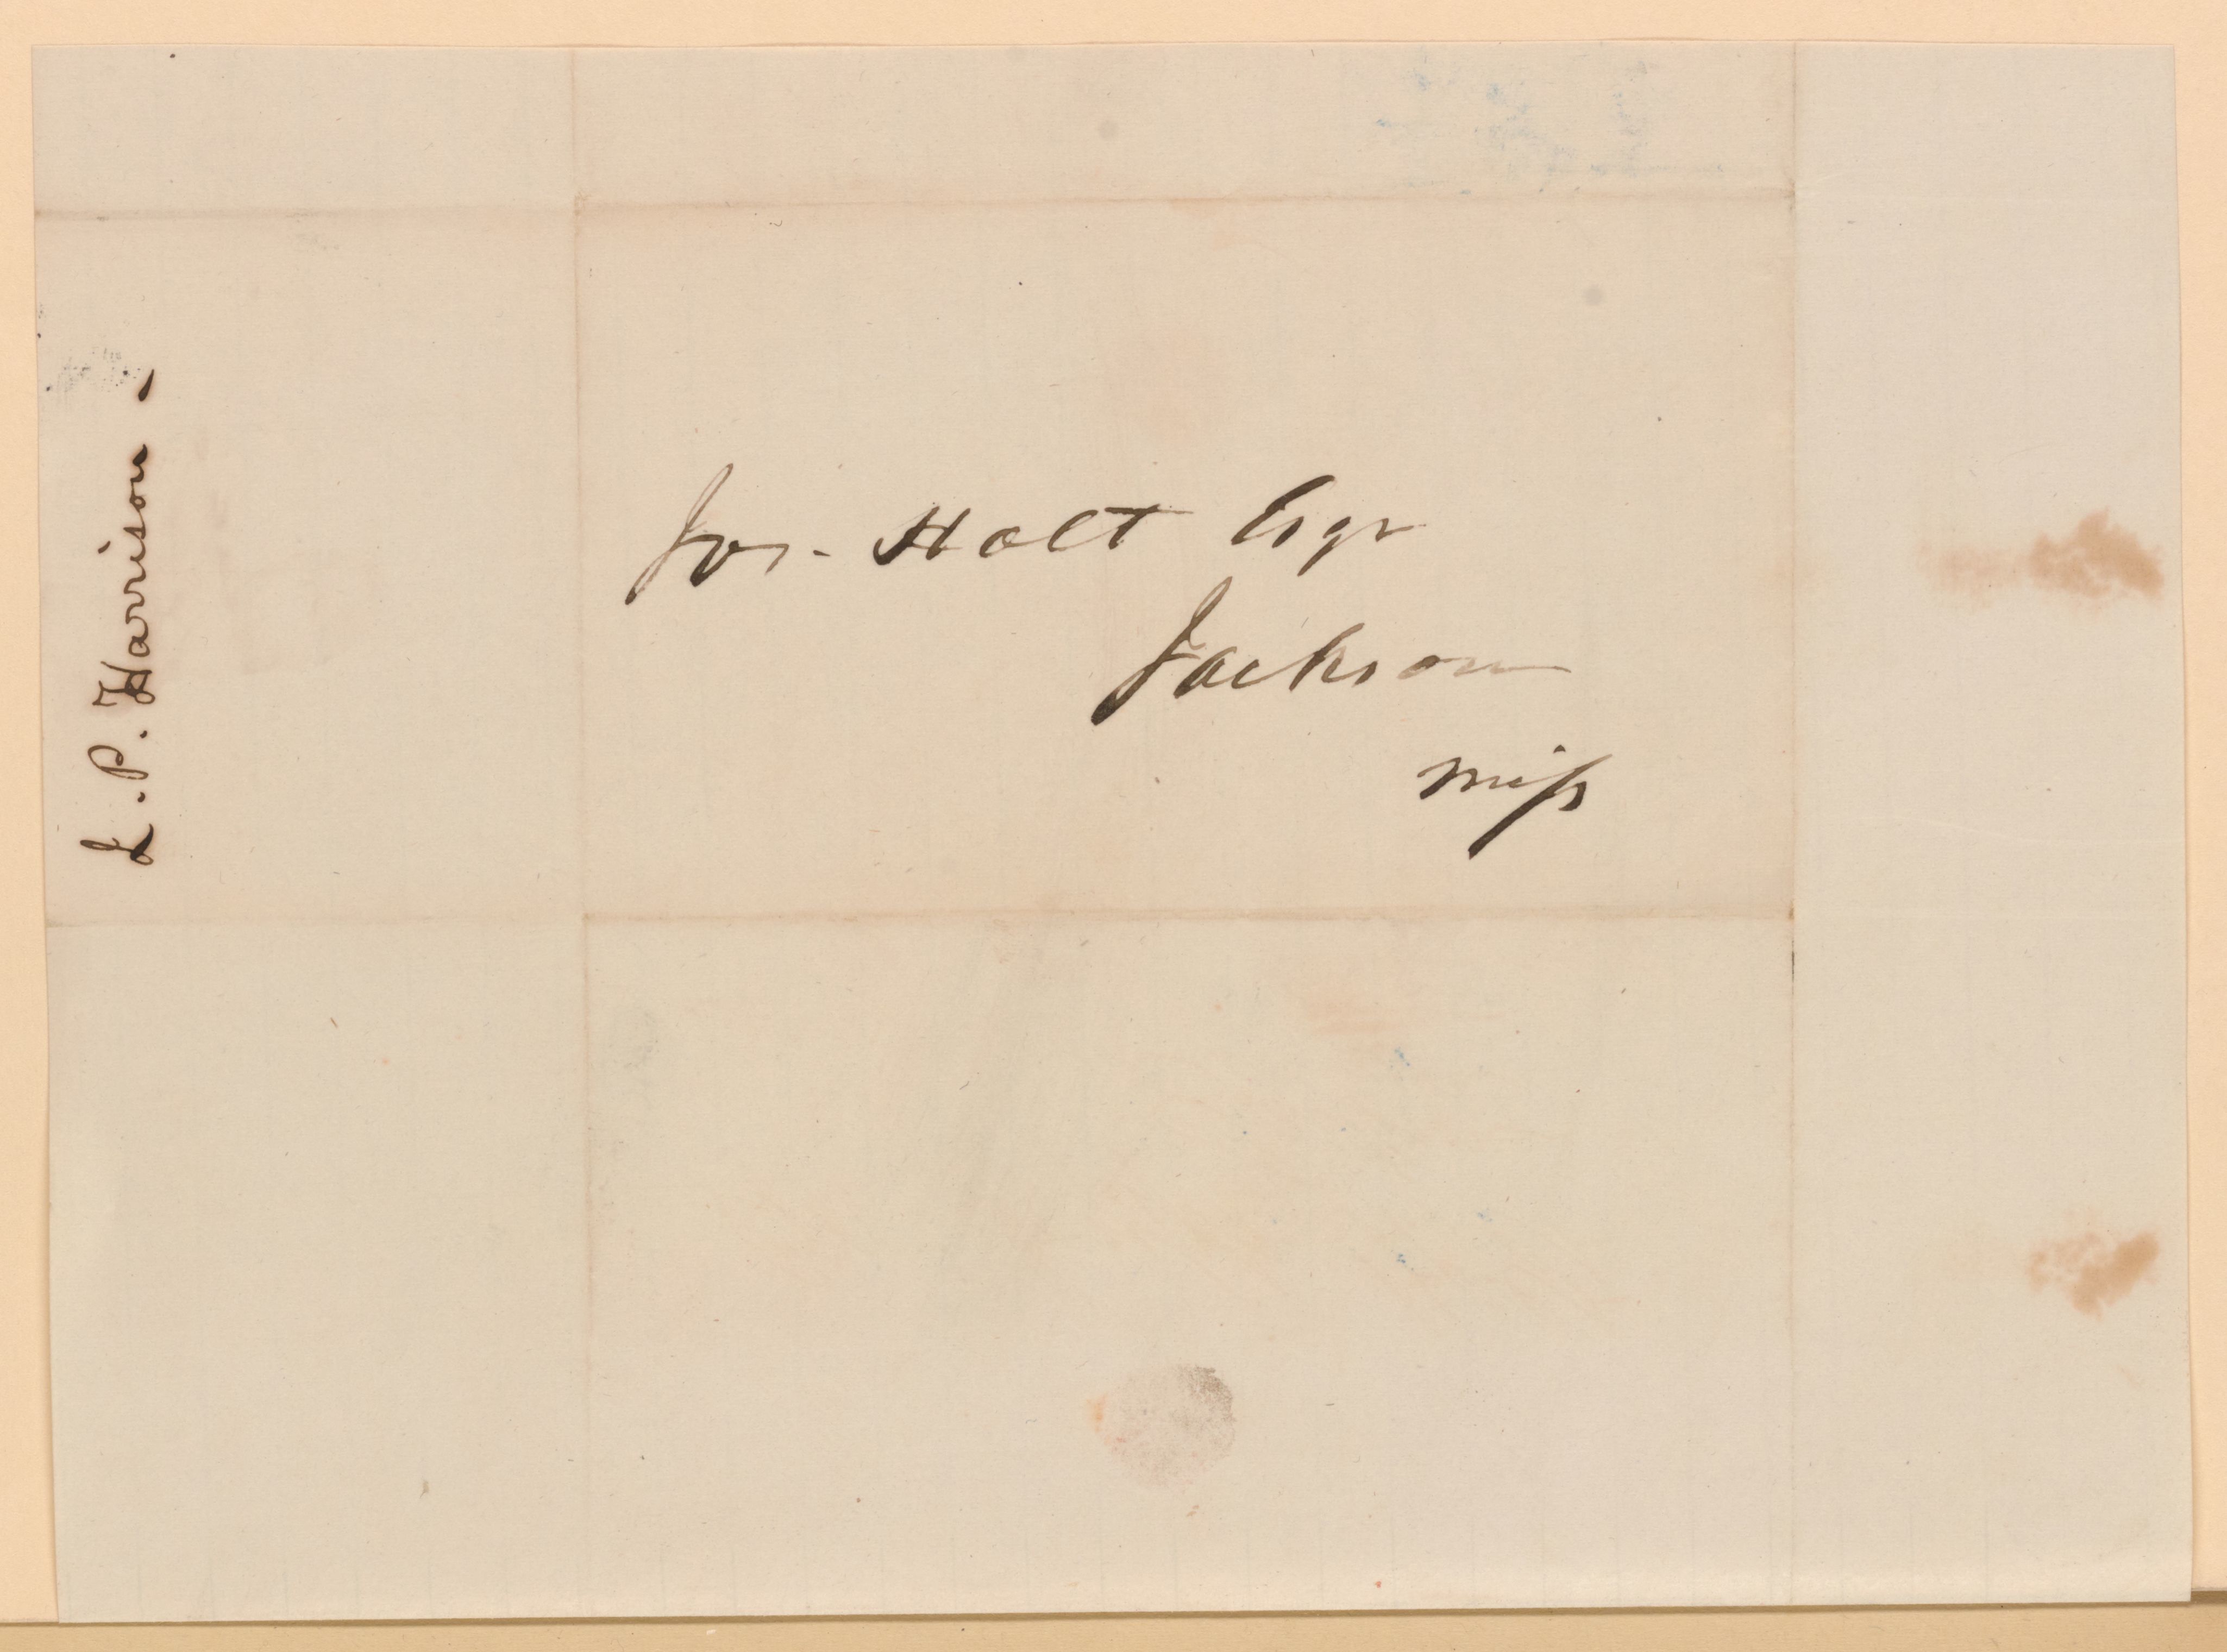 J. P. Harrison.
Jos. Holt Esqr
Jackson
Miss